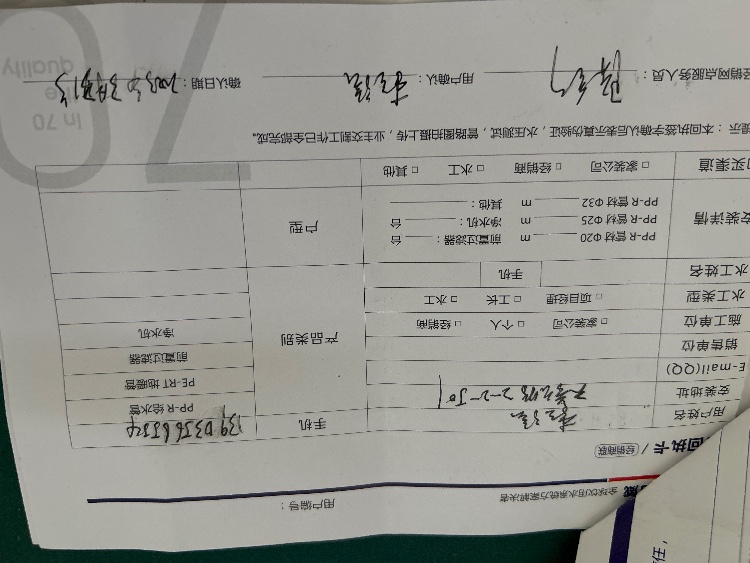 全球饮用水系统方案解决者
用户编号：
回执卡 / 经销商联
用户姓名 手机
安装地址 2-2-501 PP-R 给水管
E-mail(QQ) PE-RT 地暖管
销售单位 产品类别 前置过滤器
施工单位 □ 家装公司 □ 个人 □ 经销商 净水机
水工类型 □ 项目经理 □ 工长 □ 水工
水工姓名 手机
安装详情 PP-R 管材 Φ20 m 前置过滤器： 台 户型
PP-R 管材 Φ25 m 净水机： 台
PP-R 管材 Φ32 m 其他：
购买渠道 □ 家装公司 □ 经销商 □ 水工 □ 其他
提示：本回执签字确认后表示真伪验证，水压测试，管路图拍摄上传，业主交割工作已全部完成。
经销网点服务人员： 用户确认： 确认日期：
70
In 70
quality